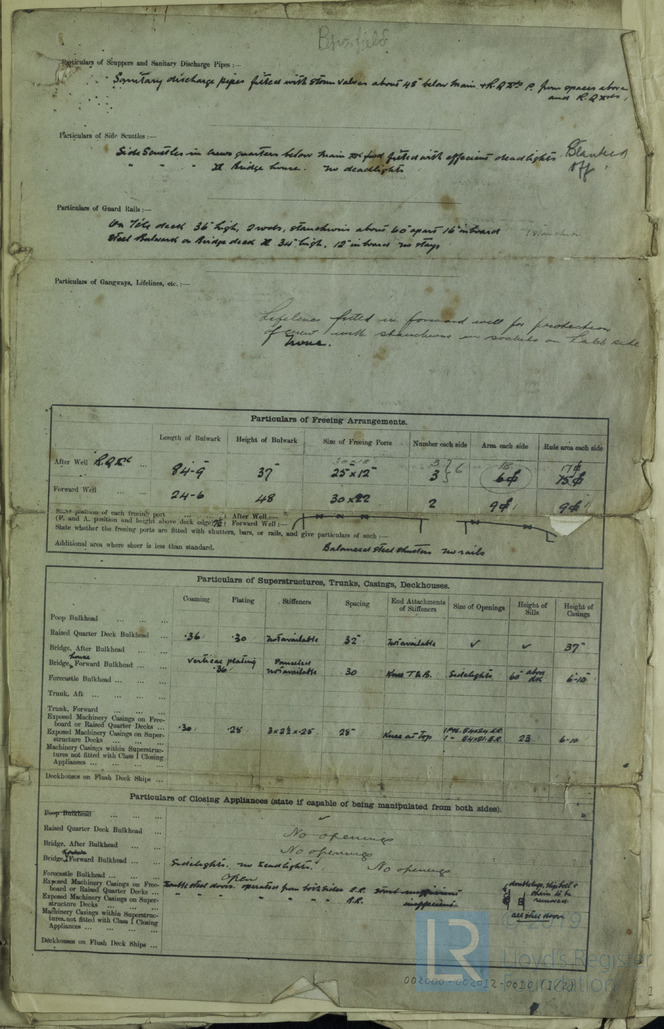 Particulars of Scuppers and Sanitary Discharge Pipes :—
Sanitary discharge pipes fitted with storm valves about 48" below main & R.Q. Dk. from spaces above
and R.Q. Dk.
Particulars of Side Scuttles :—
Side Scuttles in crews quarters below Main Dk fwd fitted with efficient deadlights. Blanked
off
" " " Bridge house. no deadlights
Particulars of Guard Rails :—
On deck 36" high, 2 rods, stanchions about 60" apart 16" inboard
Steel Bulwark on Bridge deck 34" high, 12" inboard no stays
Particulars of Gangways, Lifelines, etc. :—
Lifelines fitted in forward well for protection
of crew with stanchions in sockets on hatch side
None.
Particulars of Freeing Arrangements.
Length of Bulwark Height of Bulwark Size of Freeing Ports Number each side Area each side Rule area each side
After Well R.Q. Dk ... 84-9 37" 25"x12" 3 6
Forward Well 24-6 48 30x22 2 9 9
State position of each freeing port
(F. and A. position and height above deck edge) After Well :—
Forward Well :—
State whether the freeing ports are fitted with shutters, bars, or rails, and give particulars of such :—
Balanced steel shutters no rails
Additional area where sheer is less than standard.
Particulars of Superstructures, Trunks, Casings, Deckhouses.
Coaming Plating Stiffeners Spacing End Attachments of Stiffeners Size of Openings Height of Sills Height of Casings
Poop Bulkhead
Raised Quarter Deck Bulkhead .36 .30 not available 32" not available ✓ ✓ 37"
Bridge, After Bulkhead ...
Bridge, house Forward Bulkhead ... Vertical plating .36 Panelled not available 30 Knee T.&B. Sidelights 60" above dk 6-10"
Forecastle Bulkhead ...
Trunk, Aft ...
Trunk, Forward
Exposed Machinery Casings on Free-
board or Raised Quarter Decks ... .30 .28 3x2½x.25 28" Knee at top 23 6-10
Exposed Machinery Casings on Super-
structure Decks
Machinery Casings within Superstruc-
tures not fitted with Class I Closing
Appliances ...
Deckhouses on Flush Deck Ships ...
Particulars of Closing Appliances (state if capable of being manipulated from both sides).
Poop Bulkhead
Raised Quarter Deck Bulkhead No openings
Bridge, After Bulkhead ... No openings
Bridge, Forward Bulkhead ... Sidelights. no deadlights. No openings
Forecastle Bulkhead ... Open
Exposed Machinery Casings on Free-
board or Raised Quarter Decks ... steel doors operated from both sides E.R.
Exposed Machinery Casings on Super-
structure Decks " " " " B.R. inefficient
Machinery Casings within Superstruc-
tures, not fitted with Class I Closing
Appliances ...
Deckhouses on Flush Deck Ships ...
removed
all steel doors
LR
Lloyd's Register
Foundation